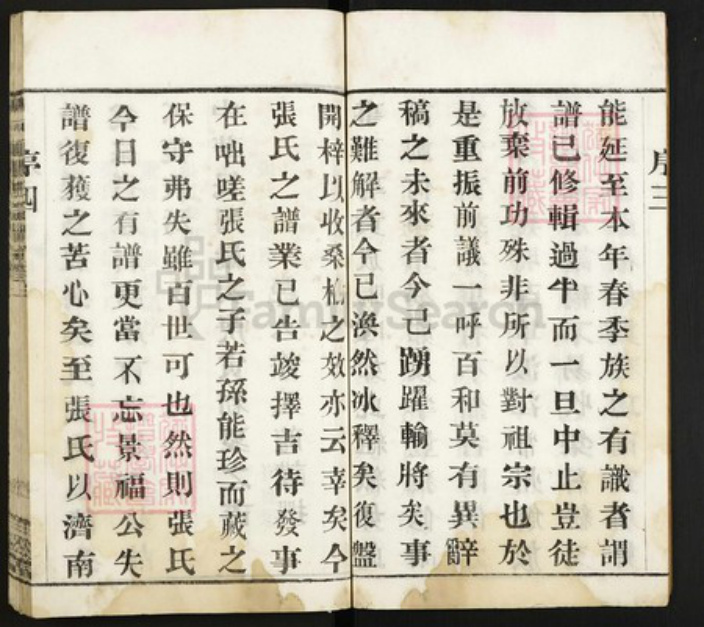 序三
能延至本年春季族之有識者謂
譜已修輯過半而一旦中止豈徒
放棄前功殊非所以對祖宗也於
是重振前議一呼百和莫有異辭
稿之未來者今已踴躍輸將矣事
之難解者今已渙然冰釋矣復盤
開梓以收桑榆之效亦云幸矣今
張氏之譜業已告竣擇吉待發事
在咄嗟張氏之子若孫能珍而藏之
保守弗失雖百世可也然則張氏
今日之有譜更當不忘景福公失
譜復獲之苦心矣至張氏以濟南
序四
FamilySearch